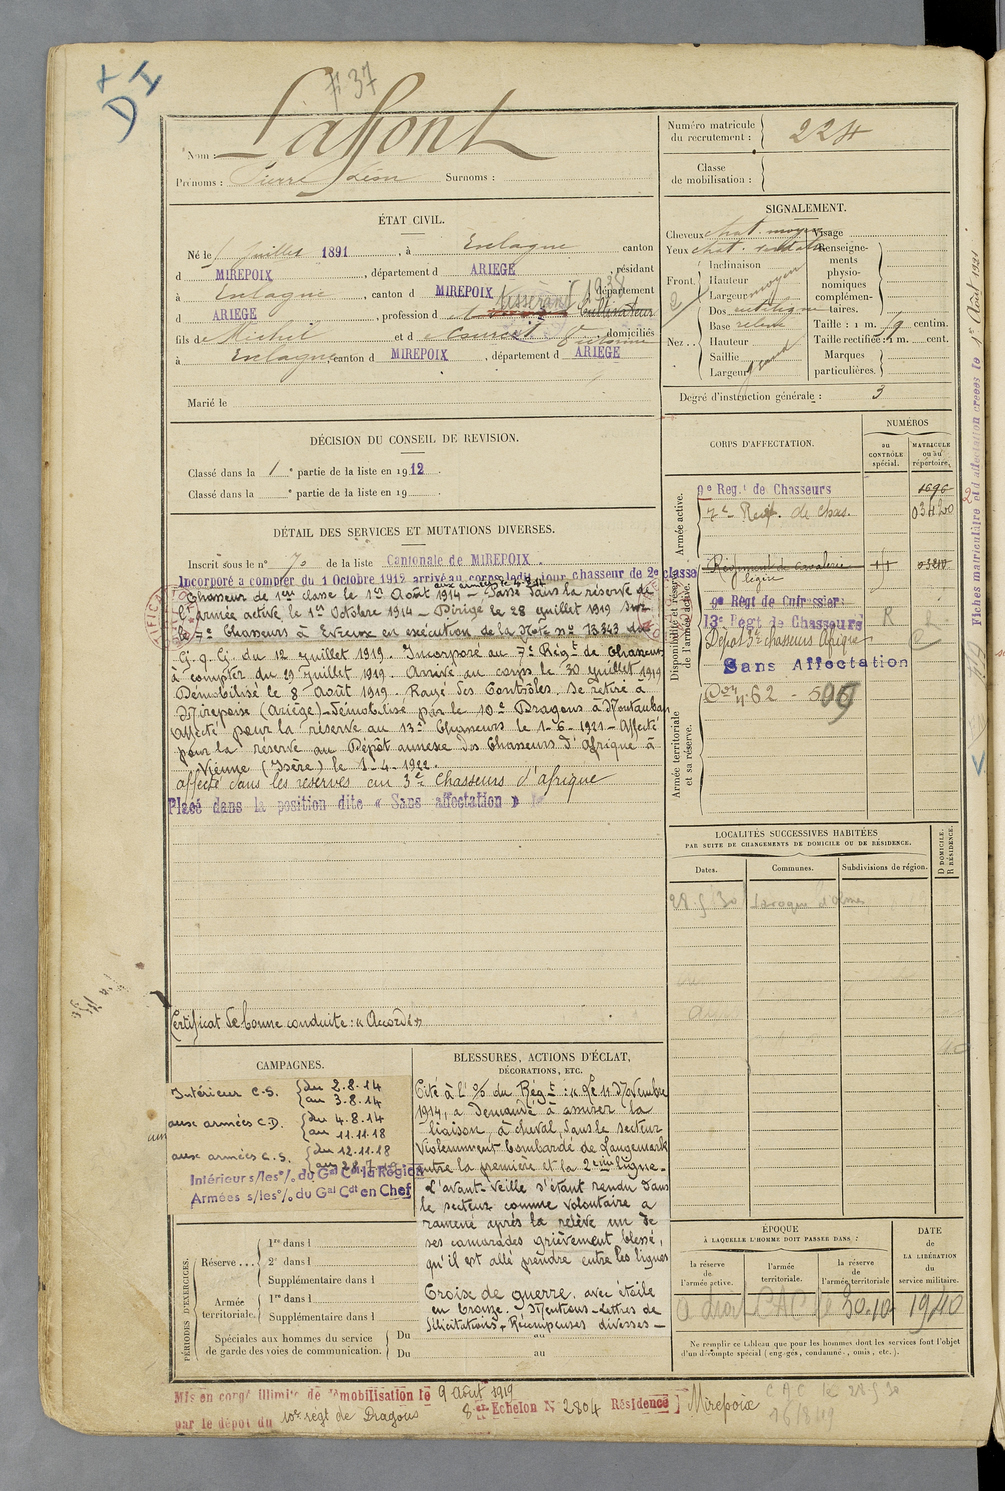 Laffont
Nom :
Prénoms : Pierre Léon Surnoms :
Numéro matricule du recrutement : 224
Classe de mobilisation :
ÉTAT CIVIL.
Né le 1 juillet 1891, à Enlagne canton
d MIREPOIX, département d ARIEGE, résidant
à Enlagne, canton d MIREPOIX, département
d ARIEGE, profession d tisserand cultivateur
fils de Michel et de domiciliés
à Enlagne canton d MIREPOIX, département d ARIEGE
Marié le
DÉCISION DU CONSEIL DE REVISION.
Classé dans la 1e partie de la liste en 1912.
Classé dans la e partie de la liste en 19
DÉTAIL DES SERVICES ET MUTATIONS DIVERSES.
Inscrit sous le n° 70 de la liste Cantonale de MIREPOIX.
Incorporé à compter du 1 Octobre 1912 arrivé au corps ledit jour chasseur de 2e classe
aux armées le
Chasseur de 1ère classe le 1er Août 1914 - Passé dans la réserve de
l'armée active le 1er Octobre 1914 - Dirigé le 28 juillet 1919 sur
le 7e Chasseurs à Evreux en exécution de la Note n° 13343 du
G.Q.G. du 12 juillet 1919. Incorporé au 7e Régt de Chasseurs
à compter du 29 juillet 1919. Arrivé au corps le 30 juillet 1919
Démobilisé le 8 Août 1919. Rayé des Contrôles. Se retire à
Mirepoix (Ariège) - Démobilisé par le 10e Dragons à Montauban
Affecté pour la réserve au 13e Chasseurs le 1-6-1921 - Affecté
pour la réserve au Dépôt annexe des Chasseurs d'Afrique à
Vienne (Isère) le 1-4-1922.
affecté dans les réserves au 3e Chasseurs d'afrique
Placé dans la position dite « Sans affectation »
Certificat de bonne conduite : « Accordé »
SIGNALEMENT.
Cheveux chat. moyen
Yeux chat.
Front. Inclinaison
Hauteur
Largeur moyen
Nez. Dos rectiligne
Base relevée
Hauteur
Saillie
Largeur grand
Visage
Renseignements physionomiques complémentaires.
Taille : 1 m. centim.
Taille rectifiée : 1 m. cent.
Marques particulières.
Degré d'instruction générale : 3
CORPS D'AFFECTATION.
NUMÉROS
au CONTRÔLE spécial.
MATRICULE ou au répertoire.
Armée active.
9e Régt de Chasseurs 1696
7e Regt. de Chas. 03420
Disponibilité et réserve de l'armée active.
Régiment de cavalerie légère 03210
9e Régt de Cuirassiers
13e Régt de Chasseurs R
Dépôt 3e chasseurs Afrique
Sans Affectation
Armée territoriale et sa réserve.
LOCALITÉS SUCCESSIVES HABITÉES
PAR SUITE DE CHANGEMENTS DE DOMICILE OU DE RÉSIDENCE.
Dates. Communes. Subdivisions de région. D DOMICILE. R RÉSIDENCE.
28 5 30 Laroque d'Olmes
CAMPAGNES.
Intérieur C.S. du 2.8.14
au 3.8.14
aux armées C.D. du 4.8.14
au 11.11.18
aux armées C.S. du 12.11.18
Intérieur s/les % du Gal Cdt la Région
Armées s/les % du Gal Cdt en Chef
BLESSURES, ACTIONS D'ÉCLAT,
DÉCORATIONS, ETC.
Cité à l'O/ du Régt : « Le 11 Novembre
1914, a demandé à assurer la
liaison, à cheval, dans le secteur
violemment bombardé de Langemark
entre la première et la 2ème ligne -
L'avant-veille s'étant rendu dans
le secteur comme volontaire a
ramené après la relève un de
ses camarades grièvement blessé,
qu'il est allé prendre entre les lignes
Croix de guerre, avec étoile
en bronze. Mentions - Lettres de
félicitations, Récompenses diverses -
PÉRIODES D'EXERCICES.
Réserve ... 1re dans l
2e dans l
Supplémentaire dans l
Armée territoriale. 1re dans l
Supplémentaire dans l
Spéciales aux hommes du service de garde des voies de communication. Du au
Du au
ÉPOQUE
À LAQUELLE L'HOMME DOIT PASSER DANS :
la réserve de l'armée active.
l'armée territoriale.
la réserve de l'armée territoriale
DATE de LA LIBÉRATION du service militaire.
1940
Ne remplir ce tableau que pour les hommes dont les services font l'objet
d'un décompte spécial (engagés, condamnés, omis, etc.).
Mis en congé illimité de démobilisation le 9 Août 1919
par le dépôt du 10e régt de Dragons 8e Echelon N° 2804 Résidence Mirepoix
Fiches matriculaire et d'affectation créées le 1er Août 1921